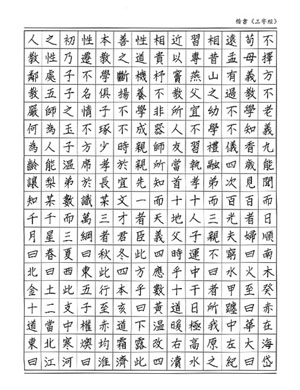 楷書《三字經》
人之初性本善性相近習相遠苟不
教性乃遷教之道貴以專昔孟母擇
鄰處子不學斷機杼竇燕山有義方
教五子名俱揚養不教父之過教不
嚴師之惰子不學非所宜幼不學老
何為玉不琢不成器人不學不知義
為人子方少時親師友習禮儀香九
齡能溫席孝於親所當執融四歲能
讓梨弟於長宜先知首孝弟次見聞
知某數識某文一而十十而百百而
千千而萬三才者天地人三光者日
月星三綱者君臣義父子親夫婦順
曰春夏曰秋冬此四時運不窮曰南
北曰西東此四方應乎中曰水火木
金土此五行本乎數十干者甲至癸
十二支子至亥曰黃道日所躔曰赤
道當中權赤道下溫暖極我中華在
東北寒燠均霜露改右高原左大海
曰江河曰淮濟此四瀆水之紀曰岱